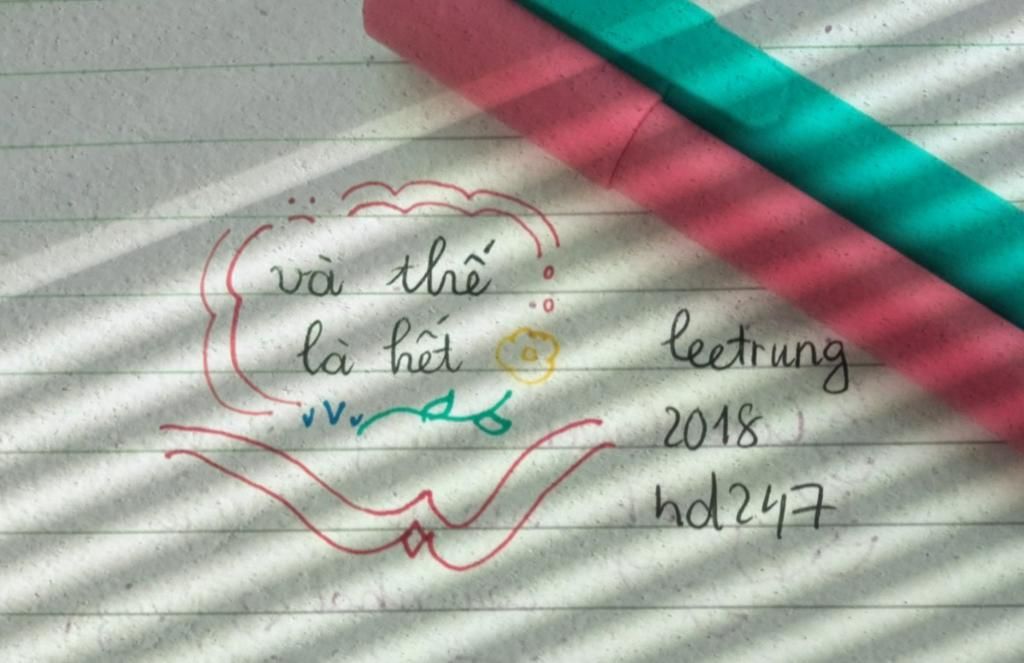 và thế
là hết
leetrung
2018
hd247